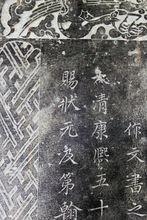 作文書之
大清康熙五十
賜狀元及第翰